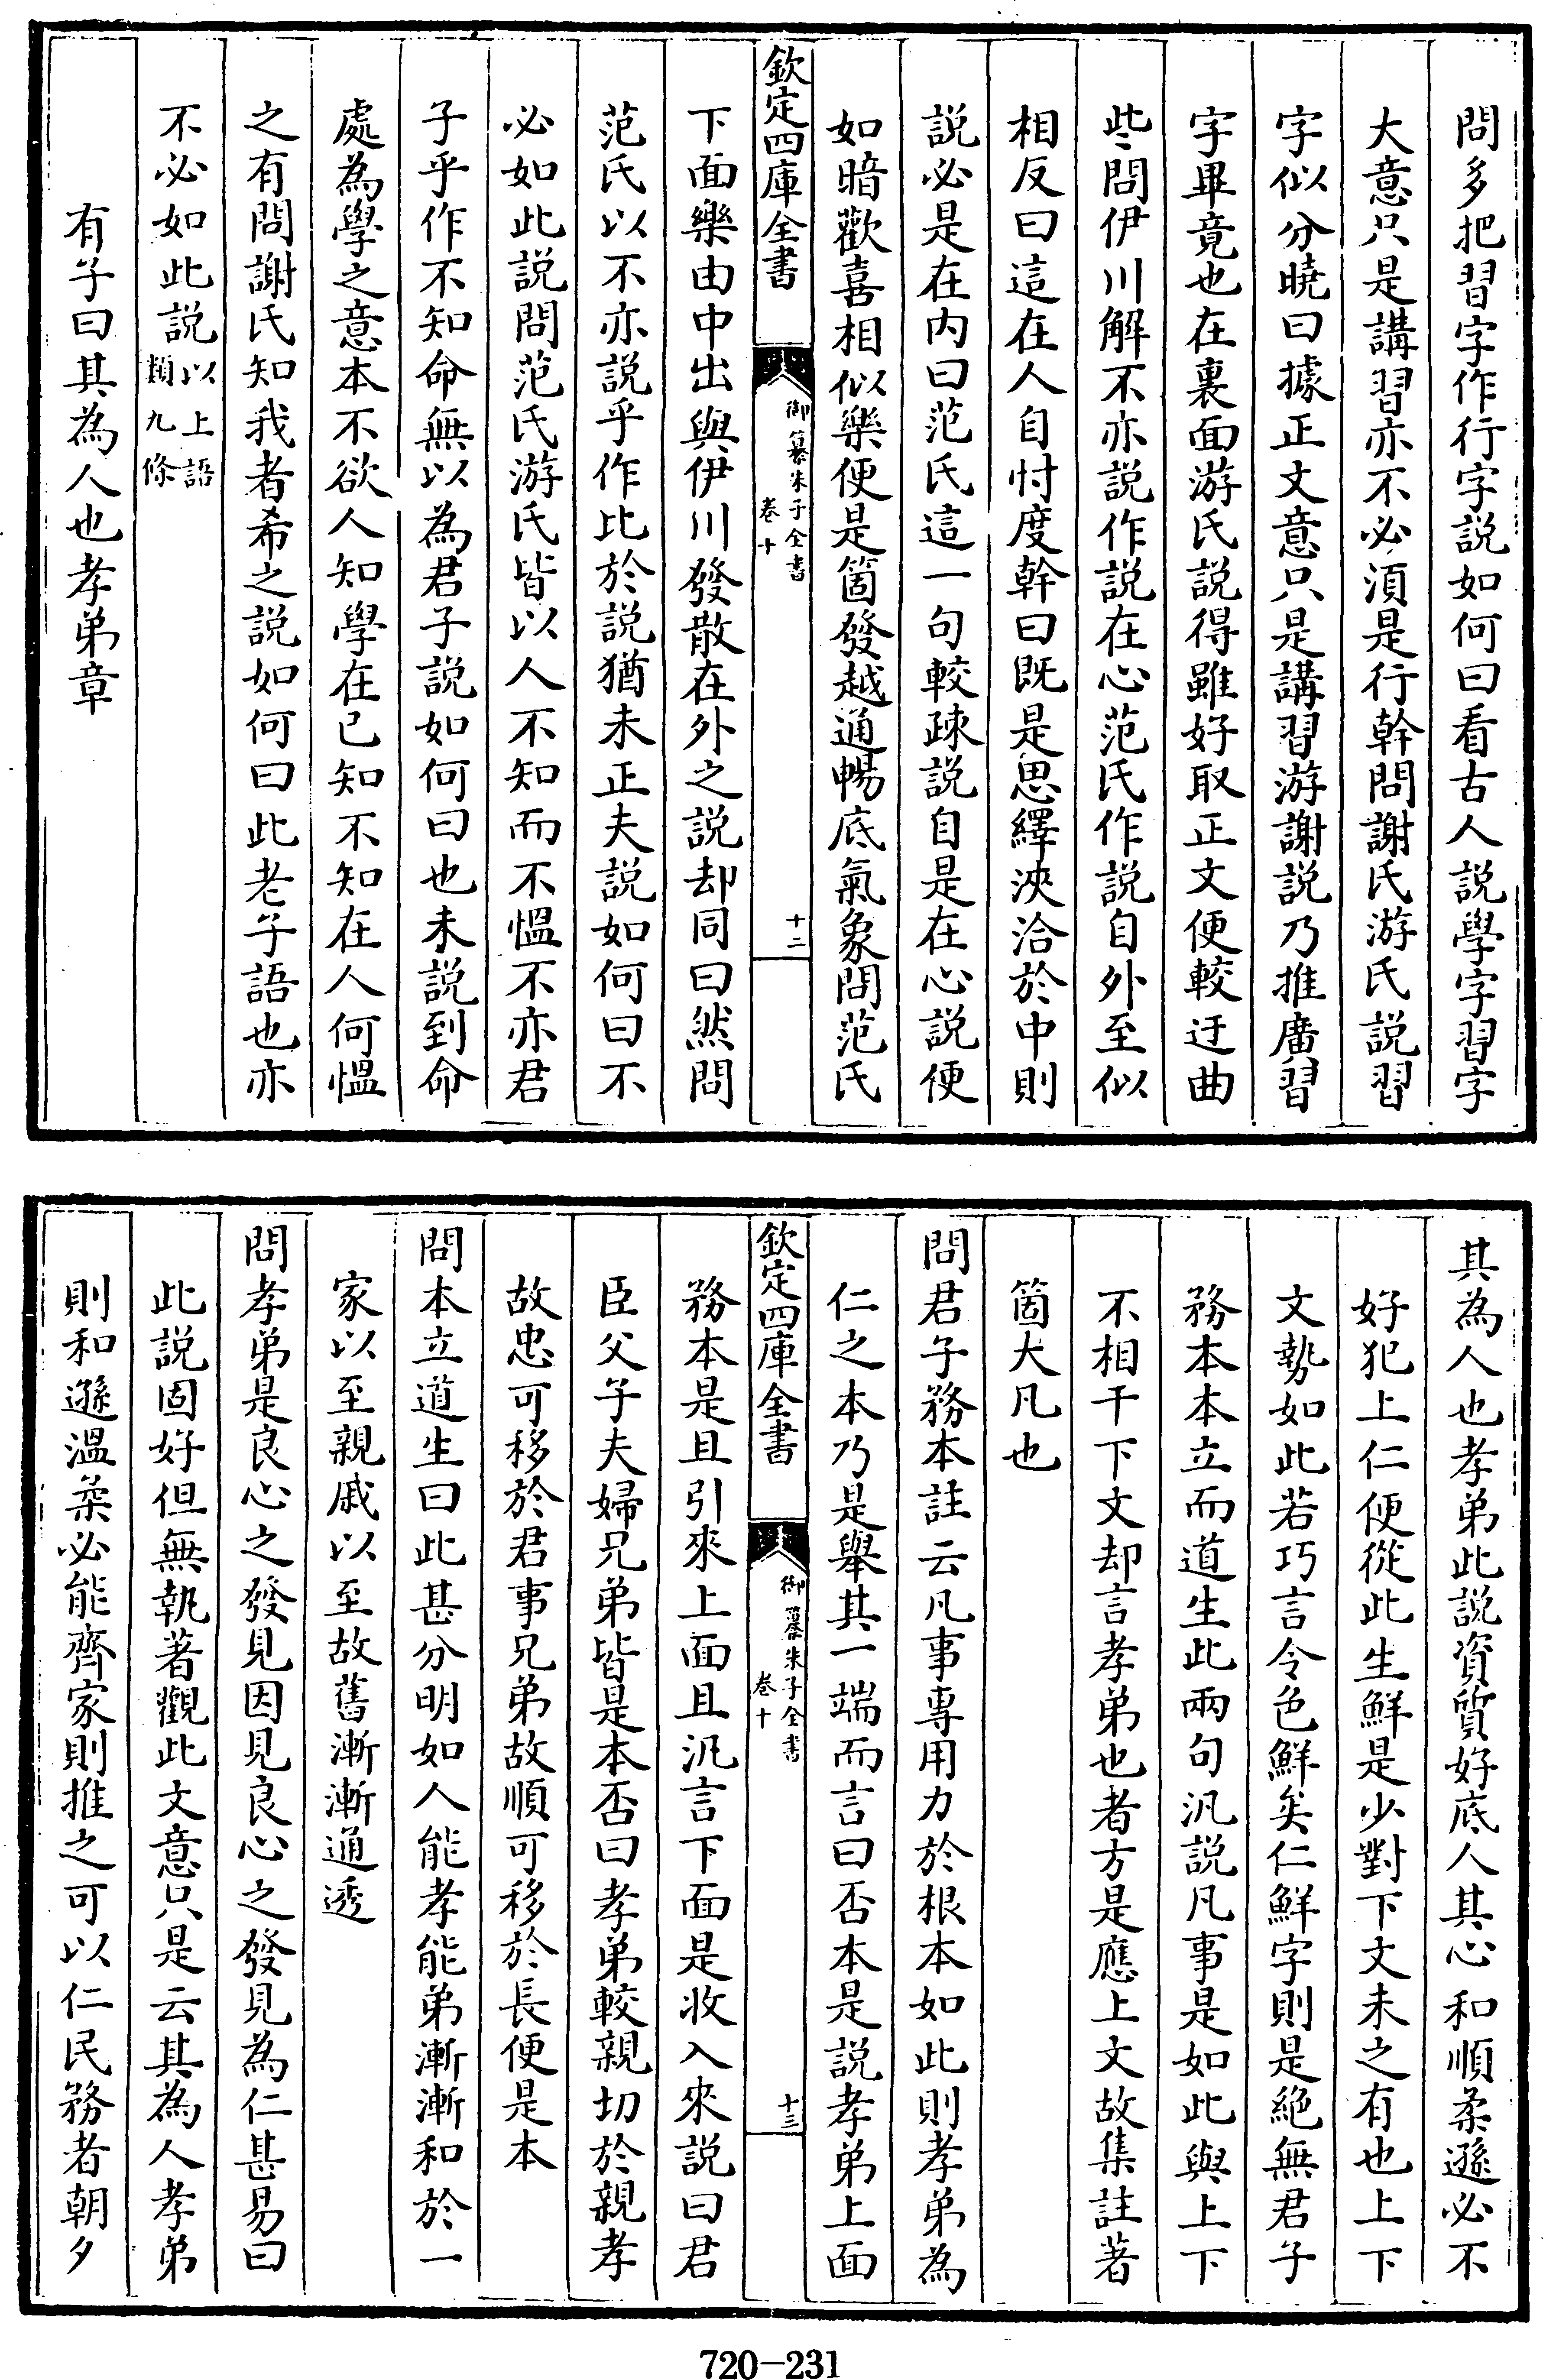 問多把習字作行字説如何曰看古人説學字習字
大意只是講習亦不必須是行幹問謝氏游氏説習
字似分曉曰據正文意只是講習游謝説乃推廣習
字畢竟也在裏面游氏説得雖好取正文便較迂曲
些問伊川解不亦説作説在心范氏作説自外至似
相反曰這在人自忖度幹曰既是思繹浹洽於中則
説必是在内曰范氏這一句較疎説自是在心説便
如暗歡喜相似樂便是箇發越通暢底氣象問范氏
欽定四庫全書
御纂朱子全書
卷十
十二
下面樂由中出與伊川發散在外之説却同曰然問
范氏以不亦説乎作比於説猶未正夫説如何曰不
必如此説問范氏游氏皆以人不知而不慍不亦君
子乎作不知命無以為君子説如何曰也未説到命
處為學之意本不欲人知學在已知不知在人何慍
之有問謝氏知我者希之説如何曰此老子語也亦
不必如此説以上語
類九條
有子曰其為人也孝弟章
其為人也孝弟此説資質好底人其心和順柔遜必不
好犯上仁便從此生鮮是少對下文未之有也上下
文勢如此若巧言令色鮮矣仁鮮字則是絶無君子
務本本立而道生此兩句汎説凡事是如此與上下
不相干下文却言孝弟也者方是應上文故集註著
箇大凡也
問君子務本註云凡事專用力於根本如此則孝弟為
仁之本乃是舉其一端而言曰否本是説孝弟上面
欽定四庫全書
御纂朱子全書
卷十
十三
務本是且引來上面且汎言下面是收入來説曰君
臣父子夫婦兄弟皆是本否曰孝弟較親切於親孝
故忠可移於君事兄弟故順可移於長便是本
問本立道生曰此甚分明如人能孝能弟漸漸和於一
家以至親戚以至故舊漸漸通透
問孝弟是良心之發見因見良心之發見為仁甚易曰
此説固好但無執著觀此文意只是云其為人孝弟
則和遜溫柔必能齊家則推之可以仁民務者朝夕
720-231